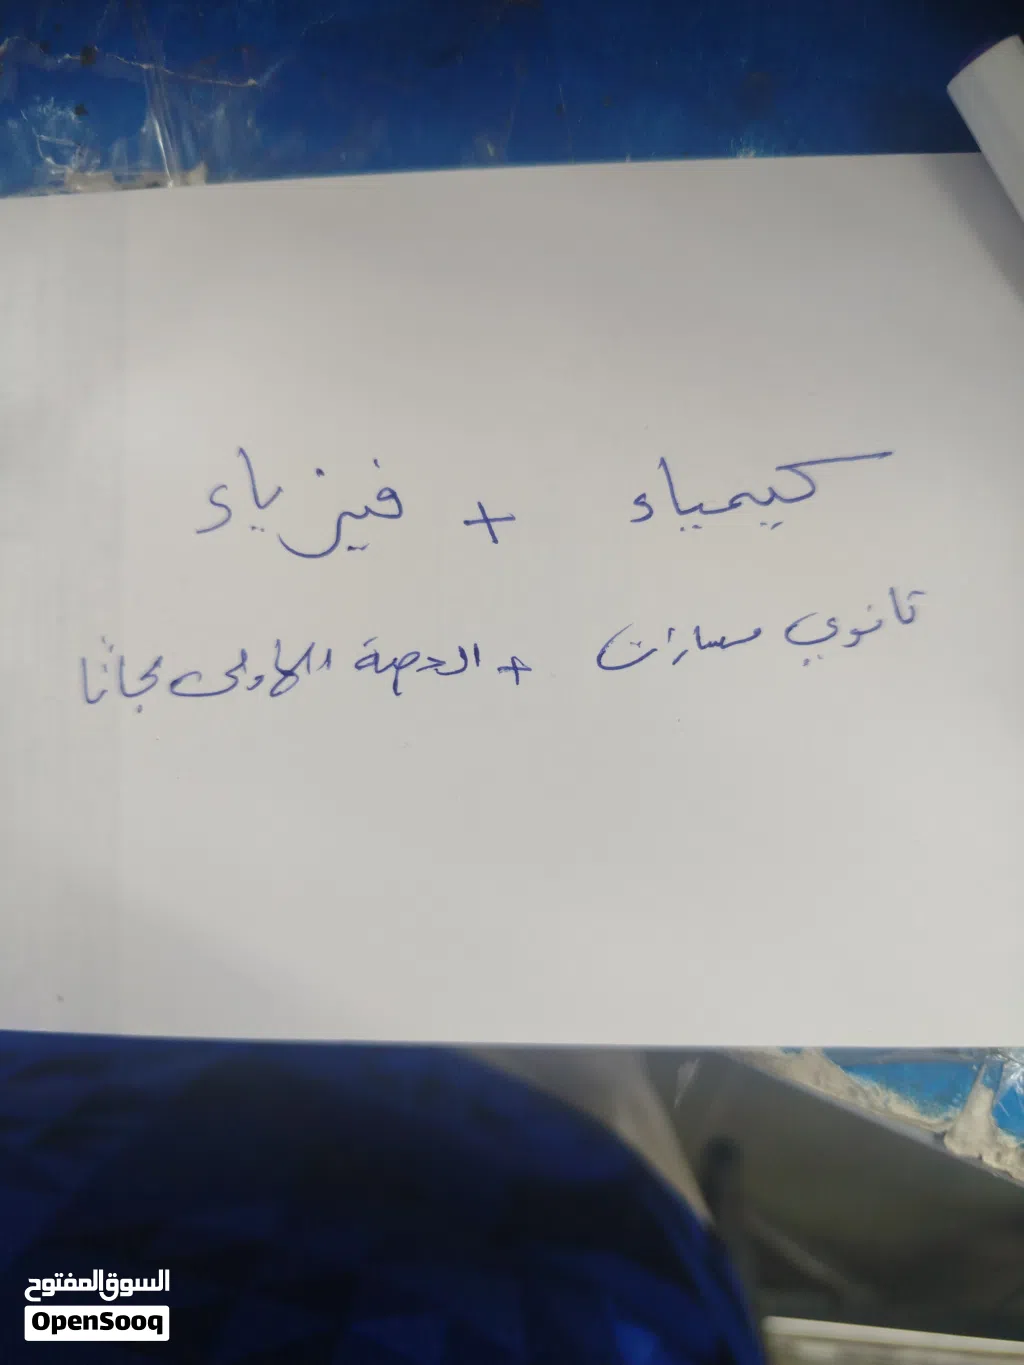 كيمياء + فيزياء
ثانوي مسارات + الحصة الاولى مجانا
السوق المفتوح
OpenSooq